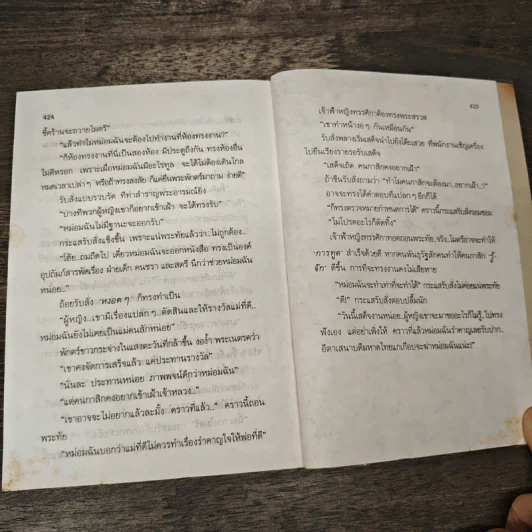 424
ขี้คร้านจะถวายไมตรี"
"แล้วทำไมหม่อมฉันจะต้องไปทำงานที่ห้องทรงงาน?"
"ก็ห้องทรงงานที่นี่เป็นสองห้อง มีประตูถึงกัน ทรงห้องอื่น
ไม่ดีหรอก เพราะเผื่อหม่อมฉันมีอะไรทูล จะได้ไม่ต้องเดินไกล
หมดเวลาเปล่าๆ หรือถ้าทรงสงสัย ก็แค่ยื่นพระพักตร์มาถาม ง่ายดี"
รับสั่งแบบรวบรัด ที่ทำสำราญพระอารมณ์ยิ่ง
"บางทีพวกผู้หญิงเขาก็อยากเข้าเฝ้า จะได้ทรงรับ"
"หม่อมฉันไม่มีฐานะจะออกรับ"
กระแสรับสั่งแข็งขึ้น เพราะแน่พระทัยแล้วว่า..ไม่ถูกต้อง..
"โฮ้ย..ถมถืดไป เดี๋ยวหม่อมฉันจะออกหนังสือ ทรงเป็นองค์
อุปถัมภ์สารพัดเรื่อง ฝ่ายเด็ก คนชรา และสตรี นึกว่าช่วยหม่อมฉัน
หน่อย..."
ถ้อยรับสั่ง 'หงอๆ' ก็ทรงทำเป็น
"ผู้หญิง..เขามีเรื่องแปลกๆ..ตัดสินและให้รางวัลแม่ที่ดี..
หม่อมฉันยังไม่เคยเป็นแม่คนสักหน่อย"
พักตร์ขาวกระจ่างในแสงตะวันที่กล้าขึ้น งอง้ำ พระเนตรคว่ำ
"เขาคงจัดการเสร็จแล้ว แค่ประทานรางวัล"
"นั่นละ ประทานหน่อย ภาพพจน์ดีกว่าหม่อมฉัน"
"แต่คนกาสิกคงอยากเข้าเฝ้าเจ้าหลวง..."
"เขาอาจจะไม่อยากแล้วละมั้ง คราวที่แล้ว.." คราวนี้ถอน
พระทัย
"หม่อมฉันบอกว่าแม่ที่ดีไม่ควรทำเรื่องรำคาญใจให้พ่อที่ดี"
425
เจ้าฟ้าหญิงทรรศิกาต้องทรงพระสรวล
"เขาทำหน้างอๆ กันเหมือนกัน"
รับสั่งพลางเริ่มเสด็จนำไปยังโต๊ะเสวย ที่พนักงานเชิญเครื่อง
ไปยืนเรียงรายรอรับเสด็จ
"เสด็จเถิด คนกาสิกคงอยากเฝ้า"
ถ้าขืนรับสั่งถามว่า "ทำไมคนกาสิกจะต้องมา..อยากเฝ้า..?"
อาจจะทรงได้คำตอบที่แปลกๆ อีกก็ได้
"ก็ทรงตรวจหมายกำหนดการได้" คราวนี้กระแสรับสั่งรอมชอม
"ไม่โปรดอะไรก็ตัดทิ้ง"
เจ้าฟ้าหญิงทรรศิกาทอดถอนพระทัย..จริง..ไมตรีอาจจะทำให้
'การทูต' สำเร็จด้วยดี หากคนพันธุรัฐสักคนทำให้คนกาสิก 'รู้
จัก' ดีขึ้น การที่จะทรงงานคงไม่เสียหาย
"หม่อมฉันจะทำเท่าที่จะทำได้" กระแสรับสั่งไม่ค่อยแน่พระทัย
"ดี!" กระแสรับสั่งตอบปลื้มนัก
"วันนี้เสด็จงานหน่อย..ผู้หญิงเขาจะมาขออะไรก็ไม่รู้..ไปทรง
ฟังเอง แต่อย่าเพิ่งให้ คราวที่แล้วหม่อมฉันรำคาญเลยรับปาก..